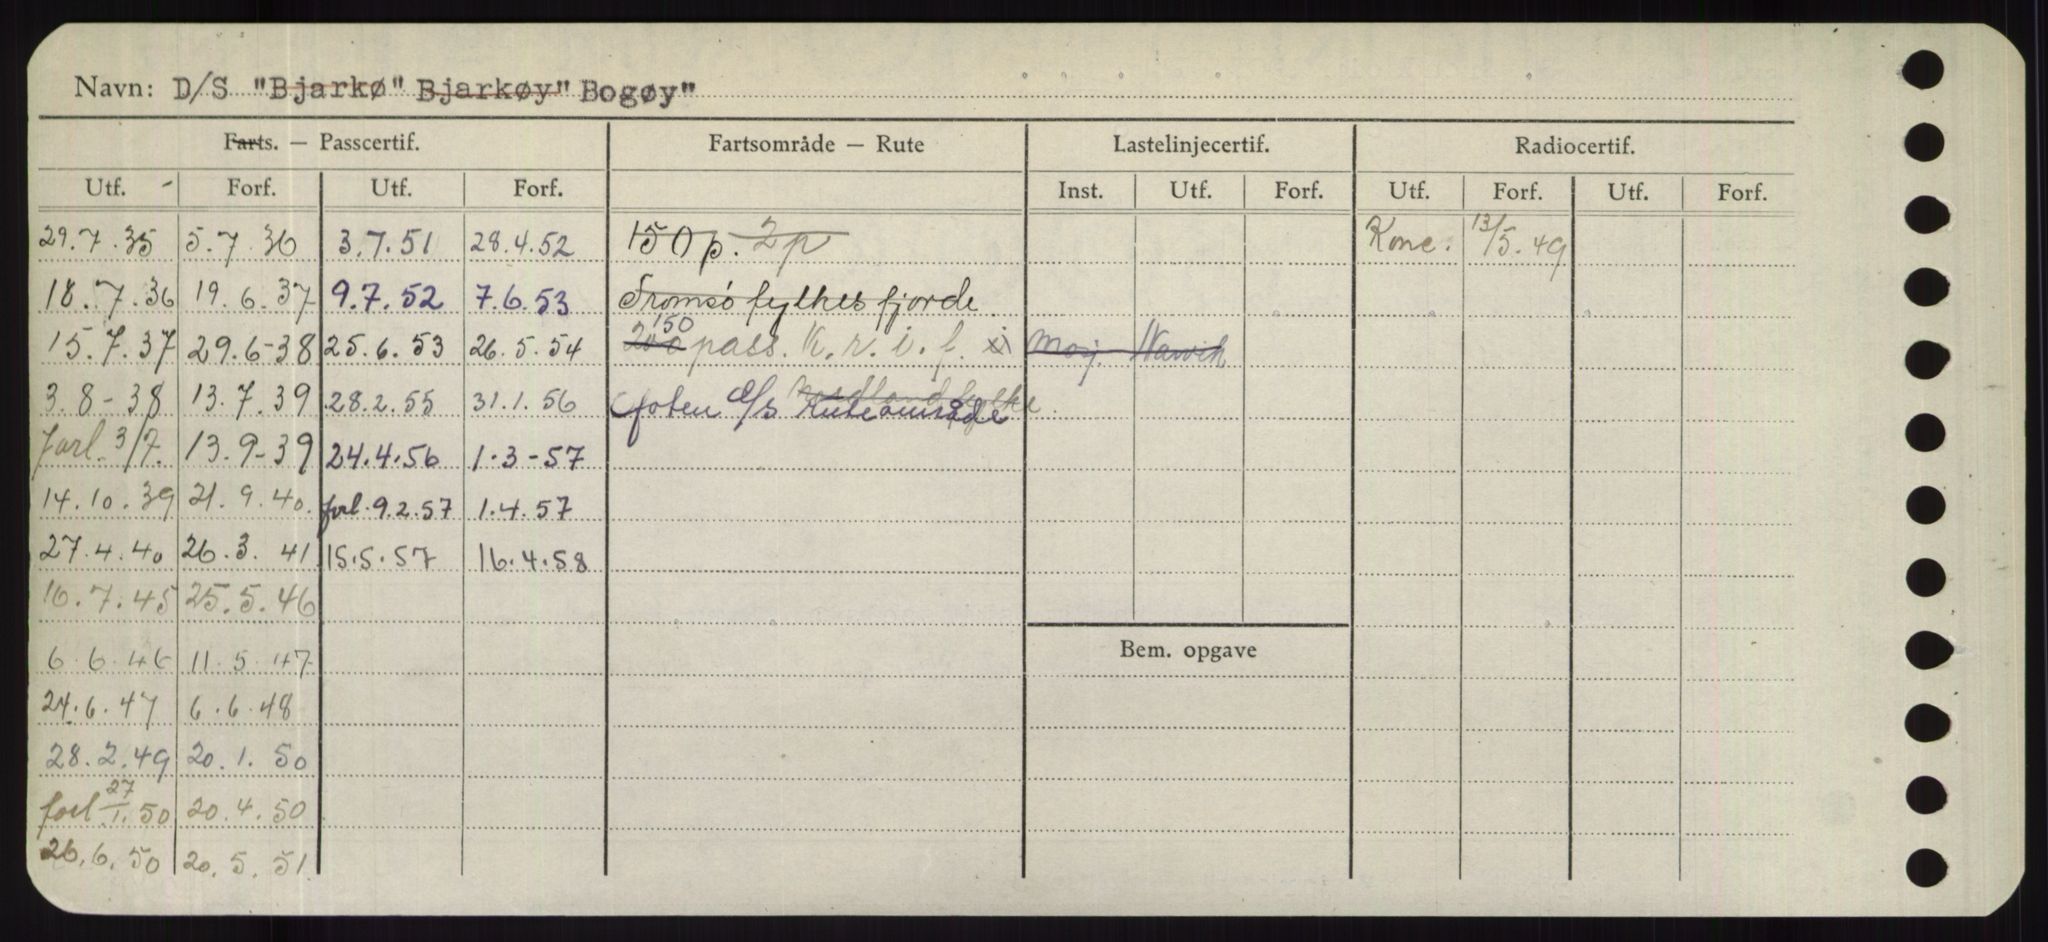 Navn: D/S "Bjarkø" Bjarkøy" Bogøy"
Farts. — Passcertif. Fartsområde — Rute Lastelinjecertif. Radiocertif.
Utf. Forf. Utf. Forf. Inst. Utf. Forf. Utf. Forf. Utf. Forf.
29.7.35 5.7.36 3.7.51 28.4.52 150 p. 2p Konc. 13/5.49
18.7.36 19.6.37 9.7.52 7.6.53 Tromsö fylkes fjorde
15.7.37 29.6-38 25.6.53 26.5.54 200 150 pass. K.r.i.f. Mosj. - Narvik
3.8-38 13.7.39 28.2.55 31.1.56 Nordland fylke
Ruteområde
forl. 3/7. 13.9-39 24.4.56 1.3-57
14.10.39 21.9.40. forl. 9.2.57 1.4.57
27.4.40 26.3.41 15.5.57 16.4.58
16.7.45 25.5.46
6.6.46 11.5.47
24.6.47 6.6.48
28.2.49 20.1.50
forl 27/1.50 20.4.50
26.6.50 20.5.51
Bem. opgave